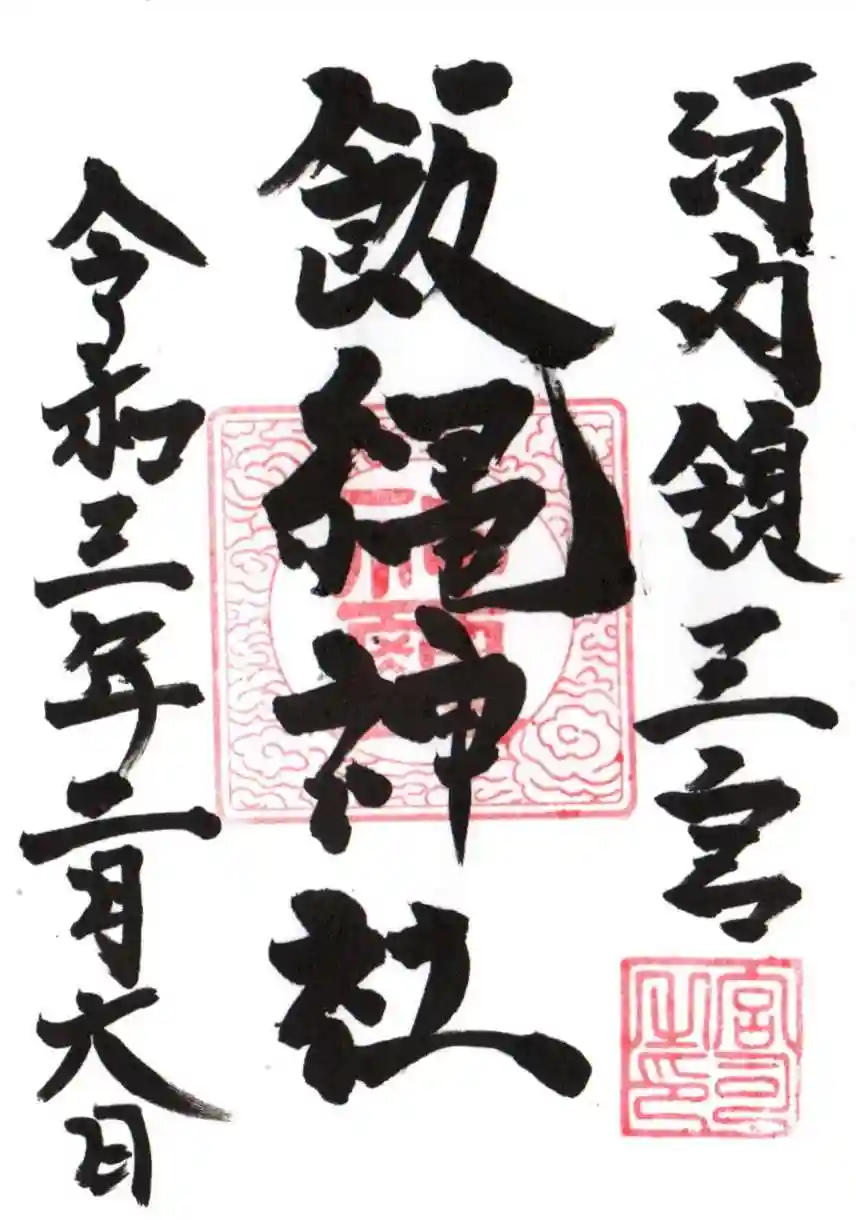 河内領三宮
宮司之印
飯縄神社
令和三年二月六日